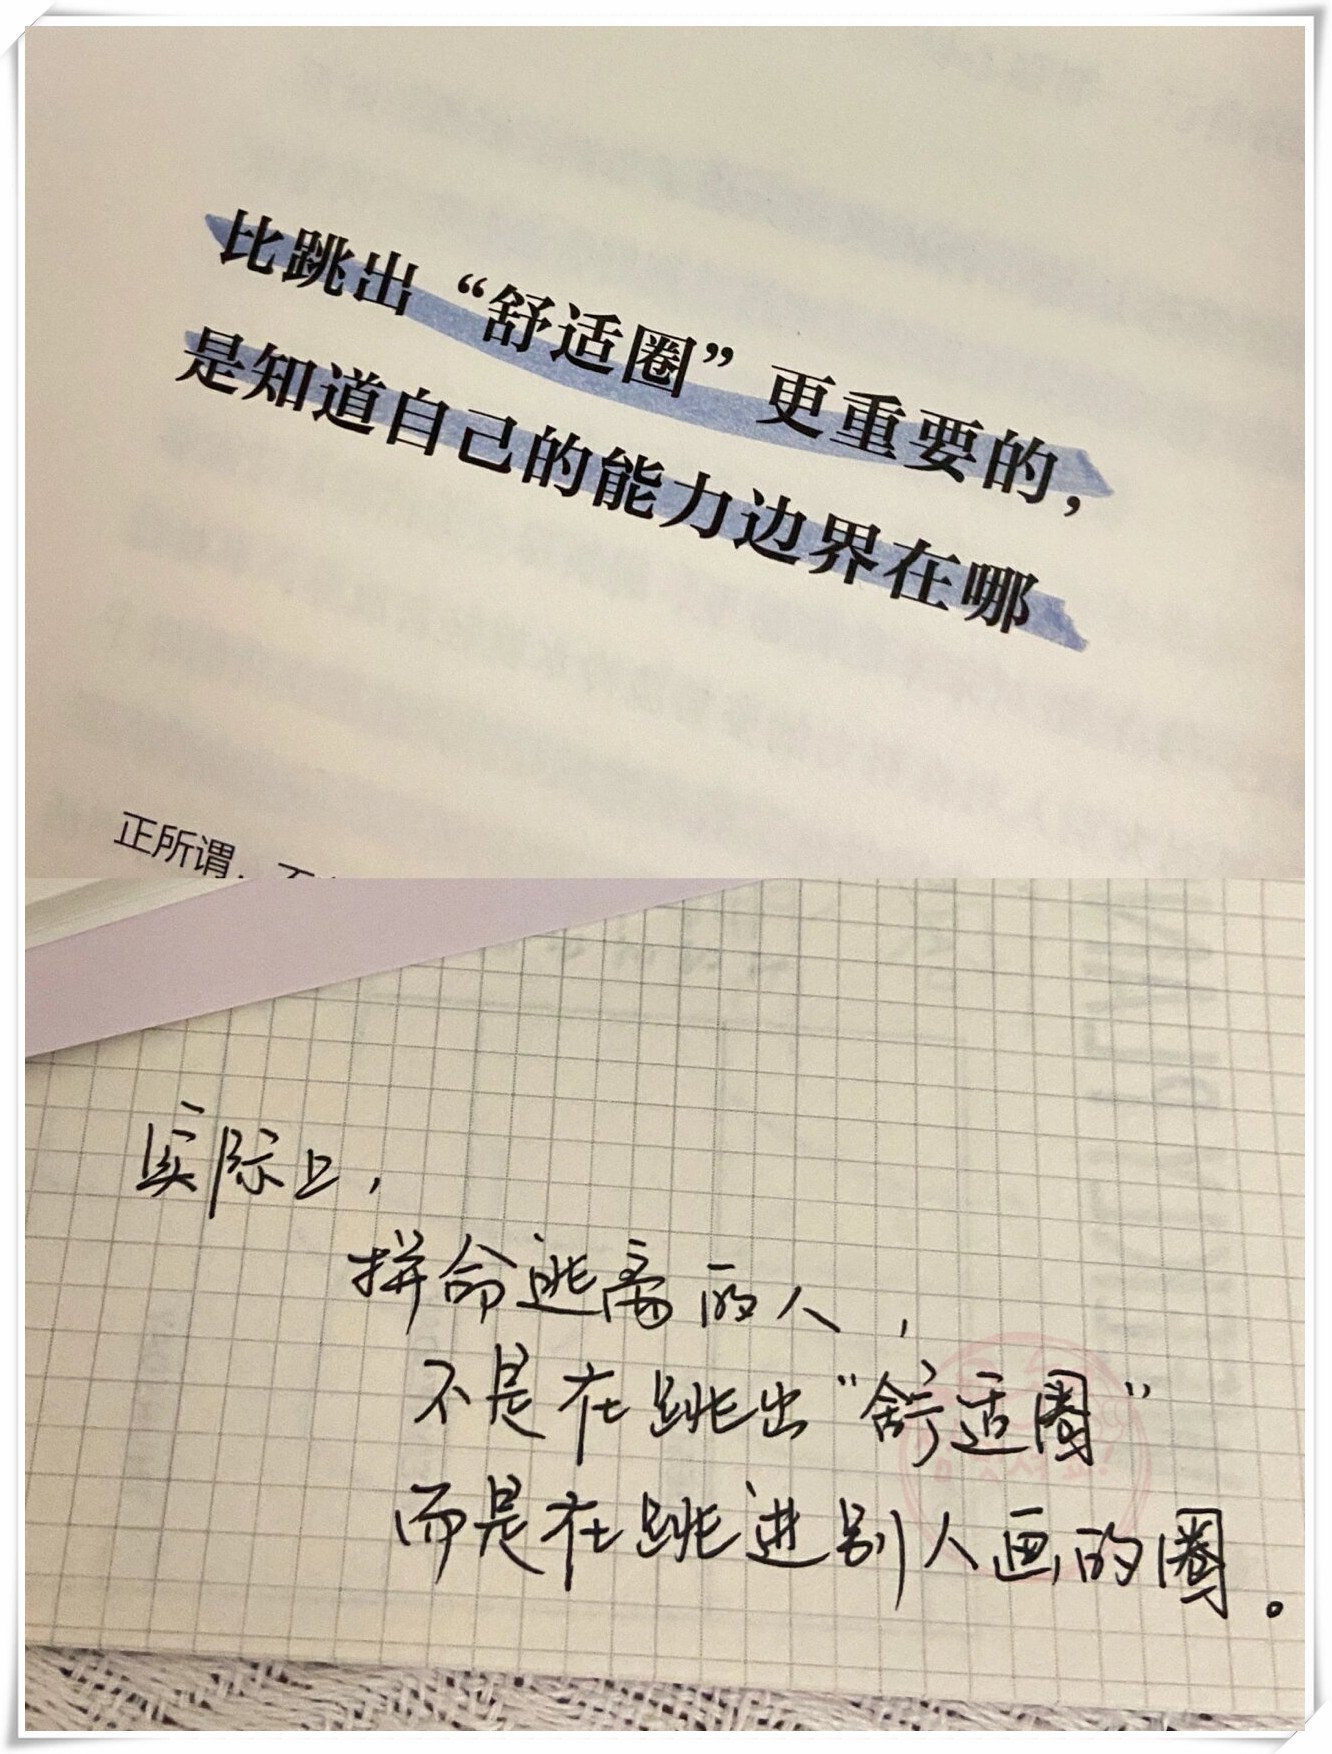 比跳出“舒适圈”更重要的，
是知道自己的能力边界在哪
正所谓，不
实际上，
拼命逃离的人，
不是在跳出“舒适圈”
而是在跳进别人画的圈。